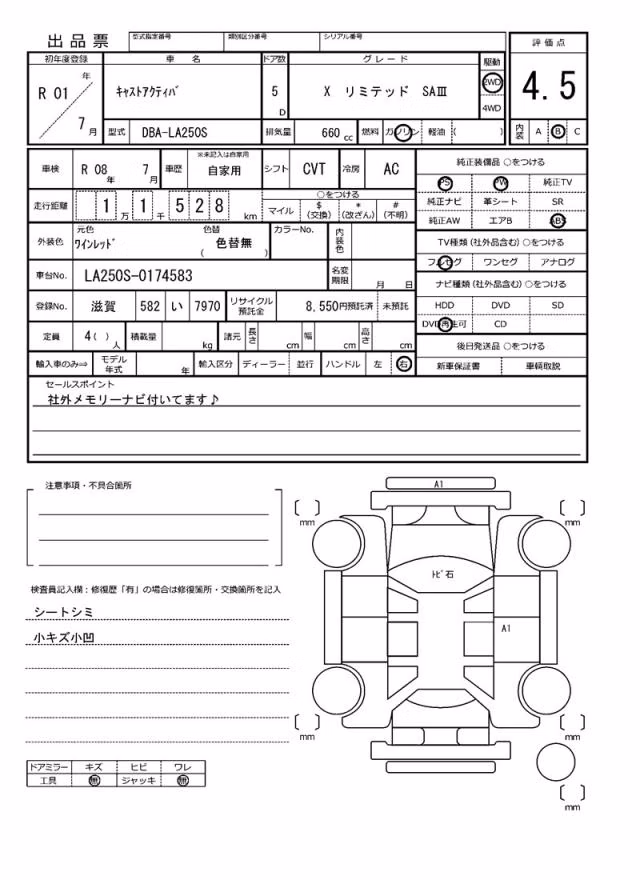 出品票 型式指定番号 類別区分番号 シリアル番号
評価点
4.5
内装 A B C
初年度登録 車名 ドア数 グレード 駆動
R 01 年 7 月
キャストアクティバ 5 D X リミテッド SAⅢ 2WD 4WD
型式 DBA-LA250S 排気量 660 cc 燃料 ガソリン 軽油 ( )
車検 R 08 年 7 月 車歴 ※未記入は自家用 自家用 シフト CVT 冷房 AC
走行距離 1 万 1 千 5 2 8 km
○をつける
マイル $ (交換) * (改ざん) # (不明)
外装色 元色 ワインレッド 色替 ( 色替無 ) カラーNo. 内装色
車台No. LA250S-0174583 名変期限 月 日
登録No. 滋賀 582 い 7970 リサイクル預託金 8,550円預託済 未預託
定員 4 ( ) 人 積載量 kg 諸元 長さ cm 幅 cm 高さ cm
輸入車のみ⇒ モデル年式 年 輸入区分 ディーラー 並行 ハンドル 左 右
純正装備品 ○をつける
PS PW 純正TV
純正ナビ 革シート SR
純正AW エアB ABS
TV種類 (社外品含む) ○をつける
フルセグ ワンセグ アナログ
ナビ種類 (社外品含む) ○をつける
HDD DVD SD
DVD再生可 CD
後日発送品 ○をつける
新車保証書 車輌取説
セールスポイント
社外メモリーナビ付いてます♪
注意事項・不具合箇所
検査員記入欄：修復歴「有」の場合は修復箇所・交換箇所を記入
シートシミ
小キズ小凹
ドアミラー キズ ヒビ ワレ
工具 無 ジャッキ 無
A1
mm mm
トビ石
A1
mm mm
mm